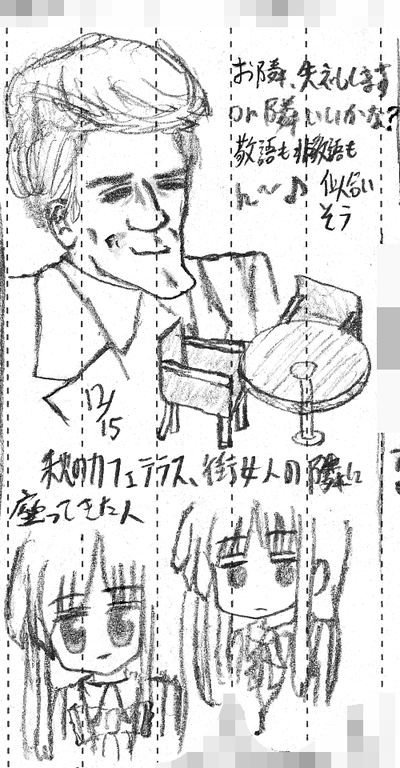 お隣、失礼します
or 隣いいかな?
敬語も非敬語も
ん〜♪ 似合い
そう
12/15
秋のカフェテラス、街女人の隣に
座ってきた人